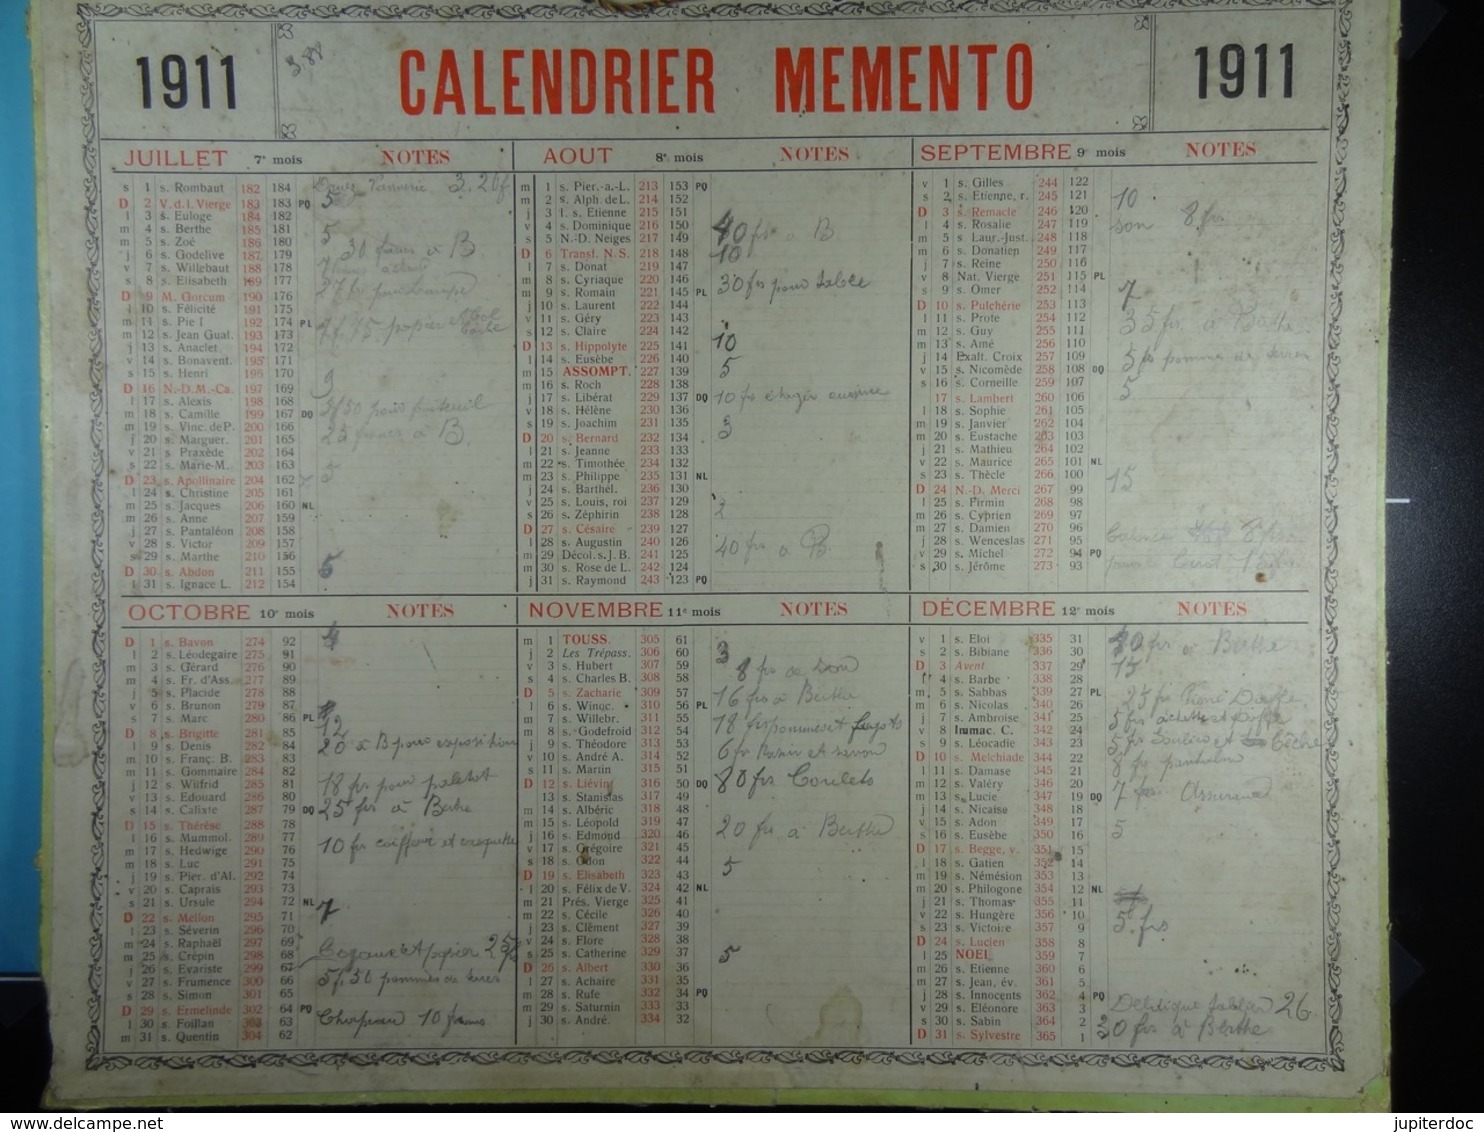 1911 CALENDRIER MEMENTO 1911
JUILLET 7e mois NOTES
s 1 s. Rombaut 182 184
D 2 V. d. l. Vierge 183 183 PQ 5
l 3 s. Euloge 184 182
m 4 s. Berthe 185 181 5
m 5 s. Zoé 186 180 30 francs à B
j 6 s. Godelive 187 179
v 7 s. Willebaut 188 178
s 8 s. Elisabeth 189 177
D 9 M. Gorcum 190 176
l 10 s. Félicité 191 175
m 11 s. Pie I 192 174 PL
m 12 s. Jean Gual. 193 173
j 13 s. Anaclet 194 172
v 14 s. Bonavent. 195 171
s 15 s. Henri 196 170
D 16 N.-D.M.-Ca. 197 169 3
l 17 s. Alexis 198 168
m 18 s. Camille 199 167 DQ
m 19 s. Vinc. de P. 200 166 25 francs à B.
j 20 s. Marguer. 201 165
v 21 s. Praxède 202 164
s 22 s. Marie-M. 203 163
D 23 s. Apollinaire 204 162 5
l 24 s. Christine 205 161
m 25 s. Jacques 206 160 NL
m 26 s. Anne 207 159
j 27 s. Pantaléon 208 158
v 28 s. Victor 209 157
s 29 s. Marthe 210 156
D 30 s. Abdon 211 155 5
l 31 s. Ignace L. 212 154
AOUT 8e mois NOTES
m 1 s. Pier.-a.-L. 213 153 PQ
m 2 s. Alph. de L. 214 152
j 3 I. s. Etienne 215 151
v 4 s. Dominique 216 150 40 frs à B
s 5 N.-D. Neiges 217 149
D 6 Transf. N.S. 218 148 10
l 7 s. Donat 219 147
m 8 s. Cyriaque 220 146 30 frs pour
m 9 s. Romain 221 145 PL
j 10 s. Laurent 222 144
v 11 s. Géry 223 143
s 12 s. Claire 224 142
D 13 s. Hippolyte 225 141 10
l 14 s. Eusèbe 226 140
m 15 ASSOMPT. 227 139 5
m 16 s. Roch 228 138
j 17 s. Libérat 229 137 DQ 10 frs
v 18 s. Hélène 230 136
s 19 s. Joachim 231 135 3
D 20 s. Bernard 232 134
l 21 s. Jeanne 233 133
m 22 s. Timothée 234 132
m 23 s. Philippe 235 131 NL
j 24 s. Barthél. 236 130
v 25 s. Louis, roi 237 129
s 26 s. Zéphirin 238 128 2
D 27 s. Césaire 239 127
l 28 s. Augustin 240 126 40 frs à B.
m 29 Décol. s. J. B. 241 125
m 30 s. Rose de L. 242 124
j 31 s. Raymond 243 123 PQ
SEPTEMBRE 9e mois NOTES
v 1 s. Gilles 244 122
s 2 s. Etienne, r. 245 121 10
D 3 s. Remacle 246 120
l 4 s. Rosalie 247 119 son 8 frs
m 5 s Laur.-Just. 248 118
m 6 s. Donatien 249 117
j 7 s. Reine 250 116
v 8 Nat. Vierge 251 115 PL
s 9 s. Omer 252 114 7
D 10 s. Pulchérie 253 113
l 11 s. Prote 254 112 35 frs à Berthe
m 12 s. Guy 255 111
m 13 s. Amé 256 110
j 14 Exalt. Croix 257 109 5 frs pommes de terre
v 15 s. Nicomède 258 108 DQ
s 16 s. Corneille 259 107 5
17 s. Lambert 260 106
l 18 s. Sophie 261 105
m 19 s. Janvier 262 104
m 20 s. Eustache 263 103
j 21 s. Mathieu 264 102
v 22 s. Maurice 265 101 NL
s 23 s. Thècle 266 100
D 24 N.-D. Merci 267 99 15
l 25 s. Firmin 268 98
m 26 s. Cyprien 269 97
m 27 s. Damien 270 96
j 28 s. Wenceslas 271 95
v 29 s. Michel 272 94 PQ
s 30 s. Jérôme 273 93
OCTOBRE 10e mois NOTES
D 1 s. Bavon 274 92 4
l 2 s. Léodegaire 275 91
m 3 s. Gérard 276 90
m 4 s. Fr. d'Ass. 277 89
j 5 s. Placide 278 88
v 6 s. Brunon 279 87
s 7 s. Marc 280 86 PL 12
D 8 s. Brigitte 281 85
l 9 s. Denis 282 84 20 à B pour exposition
m 10 s. Franç. B. 283 83
m 11 s. Gommaire 284 82
j 12 s. Wilfrid 285 81 18 frs pour paletot
v 13 s. Edouard 286 80
s 14 s. Calixte 287 79 DQ 25 frs à Berthe
D 15 s. Thérèse 288 78
l 16 s. Mummol. 289 77
m 17 s. Hedwige 290 76 10 frs
m 18 s. Luc 291 75
j 19 s. Pier. d'Al. 292 74
v 20 s. Caprais 293 73
s 21 s. Ursule 294 72 NL 7
D 22 s. Mellon 295 71
l 23 s. Séverin 296 70
m 24 s. Raphaël 297 69
m 25 s. Crépin 298 68
j 26 s. Evariste 299 67
v 27 s. Frumence 300 66 5f,30 pommes de terres
s 28 s. Simon 301 65
D 29 s. Ermelinde 302 64 PQ
l 30 s. Foillan 303 63 Chapeau 10 francs
m 31 s. Quentin 304 62
NOVEMBRE 11e mois NOTES
m 1 TOUSS. 305 61
j 2 Les Trépass. 306 60 3
v 3 s. Hubert 307 59 8 frs de
s 4 s. Charles B. 308 58
D 5 s. Zacharie 309 57 16 frs à Berthe
l 6 s. Winoc. 310 56 PL
m 7 s. Willebr. 311 55 18 frs pommes et fagots
m 8 s. Godefroid 312 54
j 9 s. Théodore 313 53 6 fr
v 10 s. André A. 314 52
s 11 s. Martin 315 51
D 12 s. Liévin 316 50 DQ 80 frs
l 13 s. Stanislas 317 49
m 14 s. Albéric 318 48
m 15 s. Léopold 319 47 20 frs à Berthe
j 16 s. Edmond 320 46
v 17 s. Grégoire 321 45
s 18 s. Odon 322 44 5
D 19 s. Elisabeth 323 43
l 20 s. Félix de V. 324 42 NL
m 21 Prés. Vierge 325 41
m 22 s. Cécile 326 40
j 23 s. Clément 327 39
v 24 s. Flore 328 38
s 25 s. Catherine 329 37 5
D 26 s. Albert 330 36
l 27 s. Achaire 331 35
m 28 s. Rufe 332 34 PQ
m 29 s. Saturnin 333 33
j 30 s. André. 334 32
DÉCEMBRE 12e mois NOTES
v 1 s. Eloi 335 31 frs à Berthe
s 2 s. Bibiane 336 30
D 3 Avent 337 29 15
l 4 s. Barbe 338 28
m 5 s. Sabbas 339 27 PL 25 frs
m 6 s. Nicolas 340 26
j 7 s. Ambroise 341 25 5 frs
v 8 Immac. C. 342 24
s 9 s. Léocadie 343 23 5 frs Souliers et Bêche
D 10 s. Melchiade 344 22 8 frs pantalon
l 11 s. Damase 345 21
m 12 s. Valéry 346 20 7 frs Assurance
m 13 s. Lucie 347 19 DQ
j 14 s. Nicaise 348 18
v 15 s. Adon 349 17 5
s 16 s. Eusèbe 350 16
D 17 s. Begge, v. 351 15
l 18 s. Gatien 352 14
m 19 s. Némésion 353 13
m 20 s. Philogone 354 12 NL
j 21 s. Thomas 355 11
v 22 s. Hungère 356 10 5 frs
s 23 s. Victoire 357 9
D 24 s. Lucien 358 8
l 25 NOEL 359 7
m 26 s. Etienne 360 6
m 27 s. Jean, év. 361 5
j 28 s. Innocents 362 4 PQ
v 29 s. Eléonore 363 3 26
s 30 s. Sabin 364 2
D 31 s. Sylvestre 365 1 30 frs à Berthe
jupiterdoc